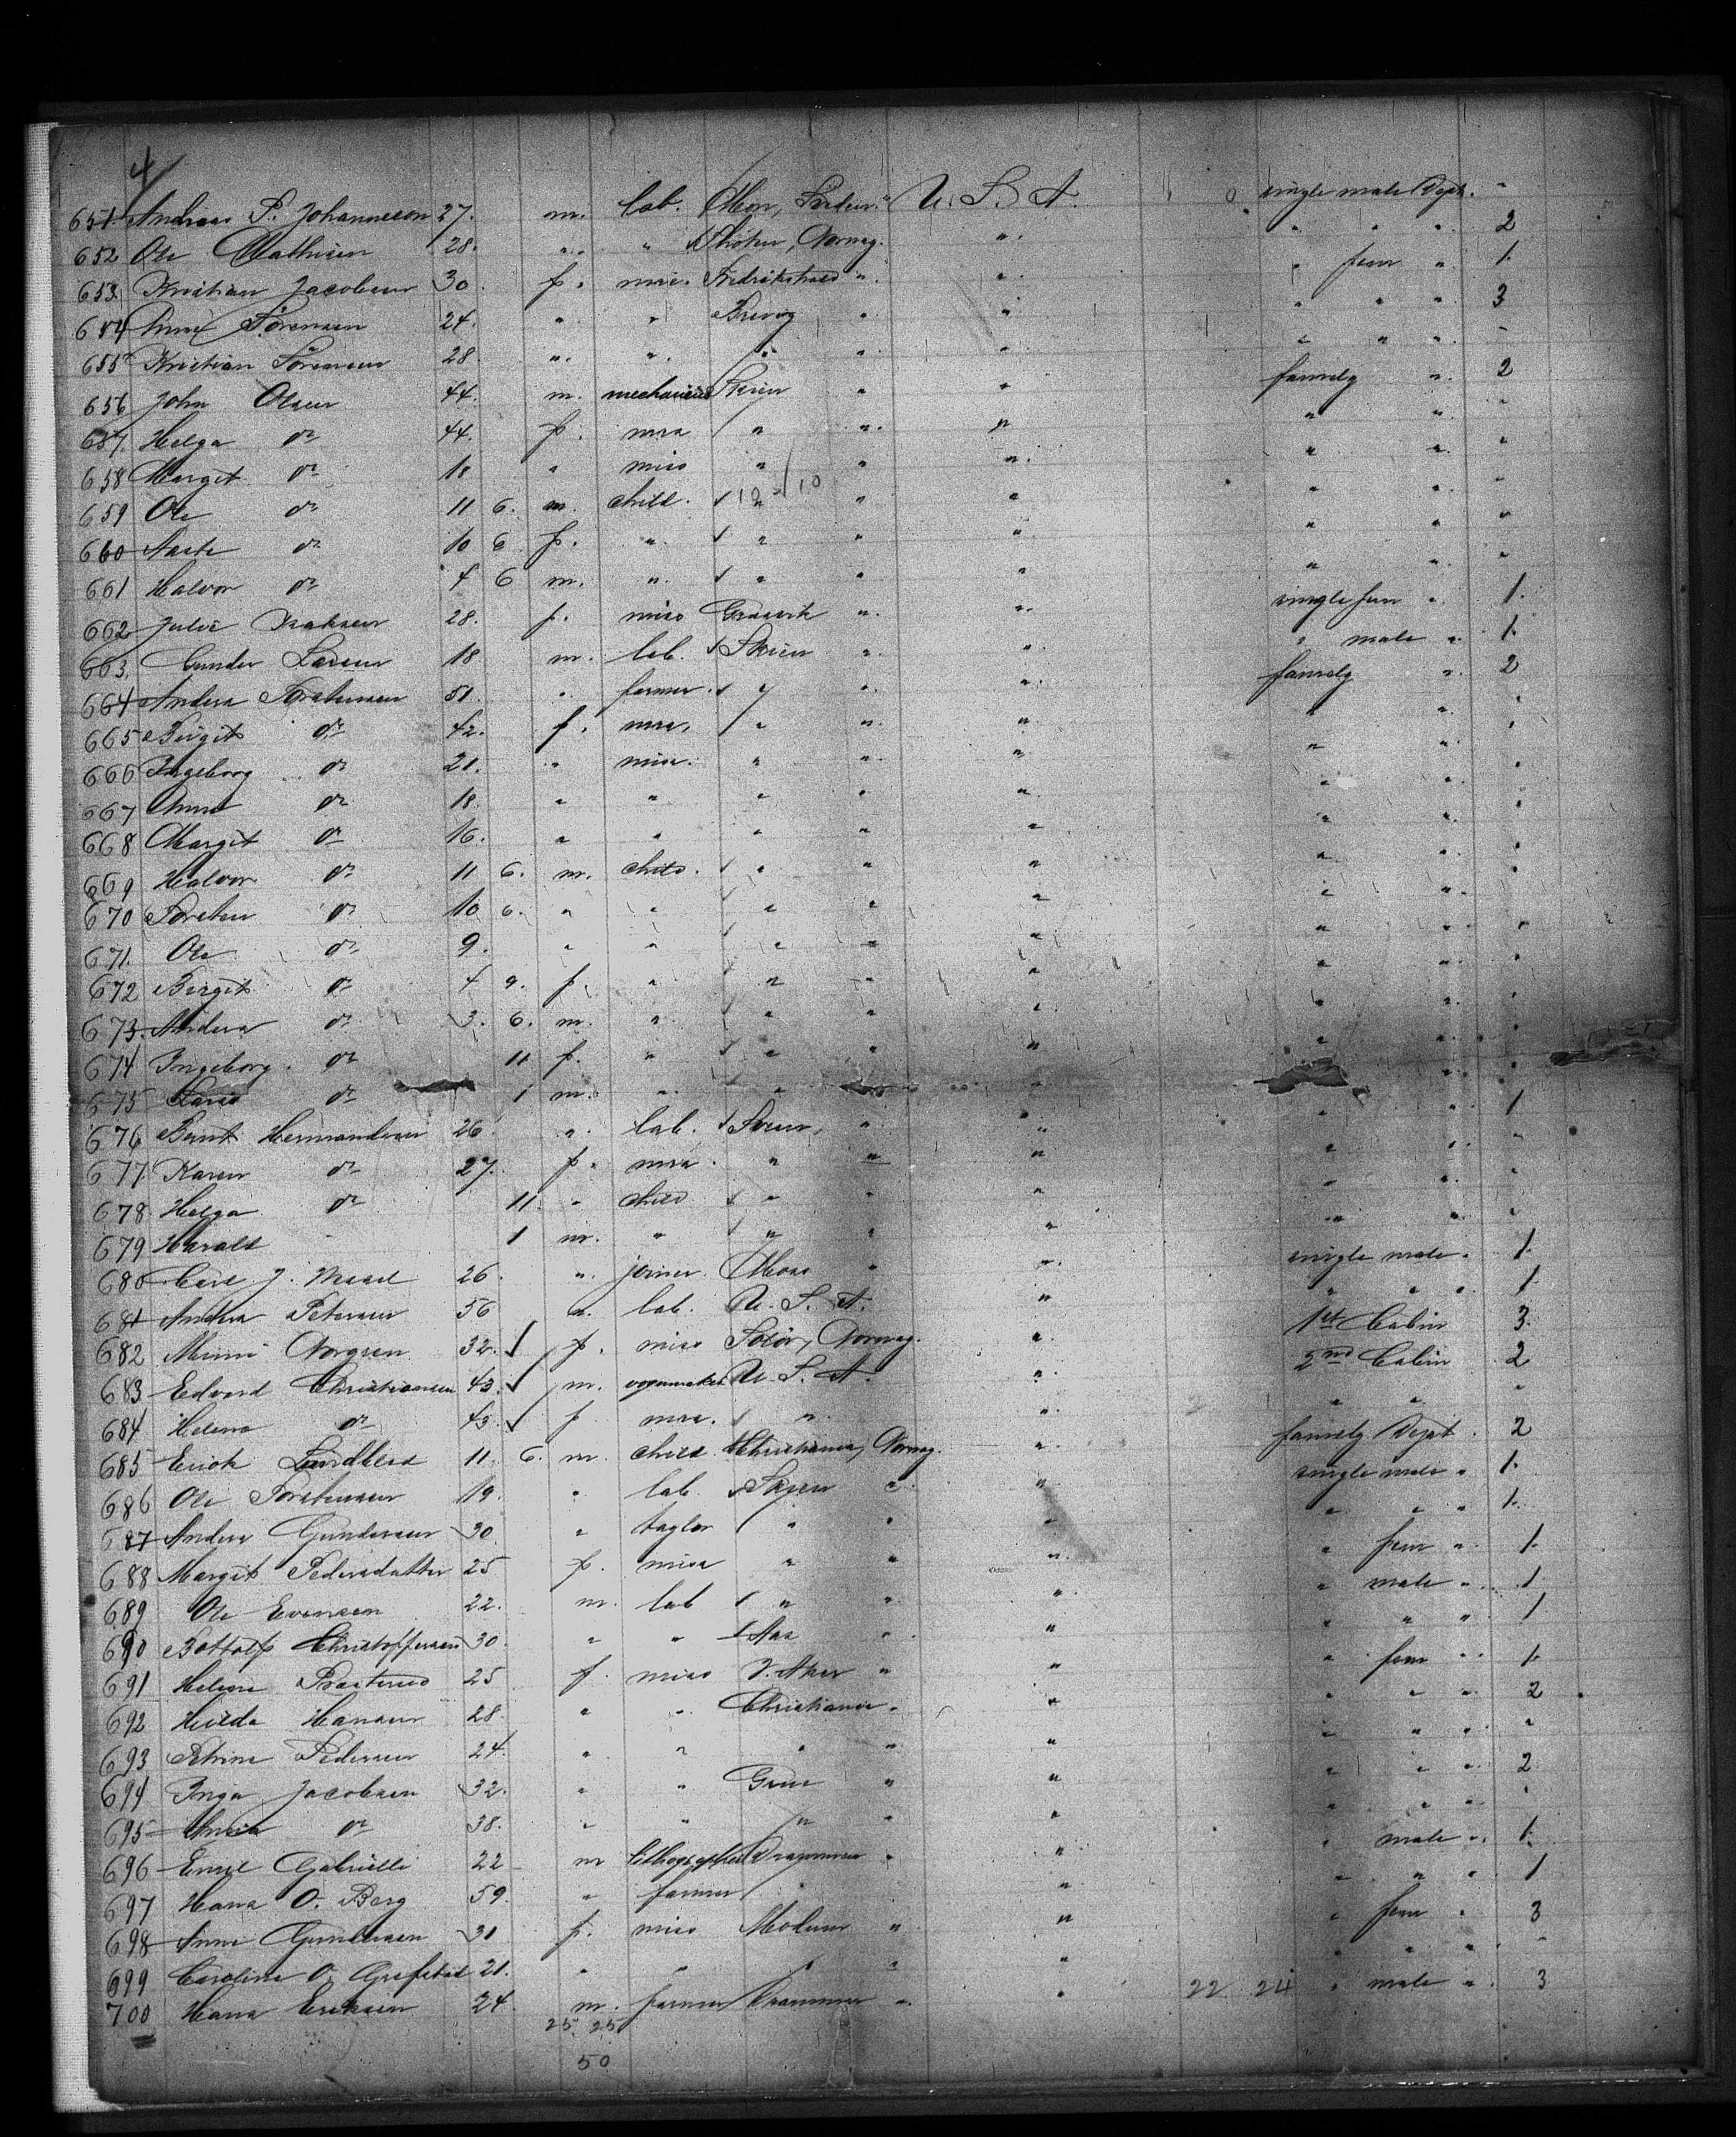 4
651. Andreas P. Johannesson 27. m. lab. Mon, U. S. A. single male Dept. "
652 Ole Mathisen 28. " " Norweg. " " " " 2
653. Kristian Jacobsen 30. f. miss Fredrikstad " " " fem " 1.
654 Anne Sörensen 24. " " Brevig " " " " " 3
655 Kristian Sörensen 28. " " " " " " " " -
656 John Olsen 44. m. mechanic Skien " " famely " 2
657. Helga do 44. f. mrs " " " " " "
658 Margit do 18 " miss " " " " " "
659 Ole do 11 6. m. child. 10 10 " " " " " "
660 do 10 6 f. " " " " " " "
661 Halvor do 4 6 m. " " " " " " "
662 Julie Isaksen 28. f. miss " " single fem " 1.
663. Gunder Larsen 18 m. lab. Skien " " " male " 1.
664 Anders Torstensen 51. " farmer. " " " famely " 2
665 Birgit do 42. f. mrs, " " " " " "
666 Ingeborg do 21. " miss. " " " " " "
667 Anne do 18. " " " " " " " "
668 Margit do 16. " " " " " " " "
669 Halvor do 11 6. m. child. " " " " " "
670 Torsten do 10 6. " " " " " " " "
671. Ole do 9. " " " " " " " "
672 Birgit do 4 9. f. " " " " " " "
673. Anders do 3. 6. m. " " " " " " "
674 Ingeborg. do 11 f. " " " " " " "
675 Lars do 1 m. " " " " "
676 Bent Hermandsen 26. " lab. Skien, " " " " 1
677. Karen do 27. f. mrs. " " " " " "
678 Helga do 11. " child " " " " " "
679 Harald 1 m. " " " " " " "
680 Carl J. 26. " joiner. Moss " " single male. 1.
681 Anders Petersen 56 " lab. U. S. A. " " " " 1
682 Minni Norgren 32. f. miss Solör, Norweg. " 1st Cabin 3.
683 Edvard Christiansen 43. m. U. S. A. " 2nd Cabin 2
684 Helena do 43. f. mrs. " " " " "
685 Erick Lindblad 11. 6. m. child Christiania, Norweg. " famely Dept. 2
686 Ole Torstensen 19. " lab. Skien " " single male " 1.
687 Anders Gundersen 30. " taylor " " " " " " 1.
688 Margit Pedersdatter 25 f. miss " " " " fem " 1.
689 Ole Evensen 22. m. lab " " " " male " 1
690 Bottolf Christoffersen 30. " " Aas " " " " " 1
691 Helene 25 f. miss V. Aker " " " fem " 1.
692 Hulda Hansen 28. " " Christiania " " " " " 2
693 Petrine Pedersen 24. " " " " " " " " "
694 Inga Jacobsen 32. " " " " " " " 2
695 do 38. " " " " " " " " "
696 Emil Gabrielli 22 m lithographer Drammen " " " male " 1.
697 Hans O. Berg 59. " farmer " " " " " 1
698 Anne Gundersen 31 f. miss Modum " " " fem " 3
699 Caroline O. 21. " " " " " " " " -
700 Hans Eriksen 24. m. farmer Drammen " " 22 24 " male " 3
25 25
50